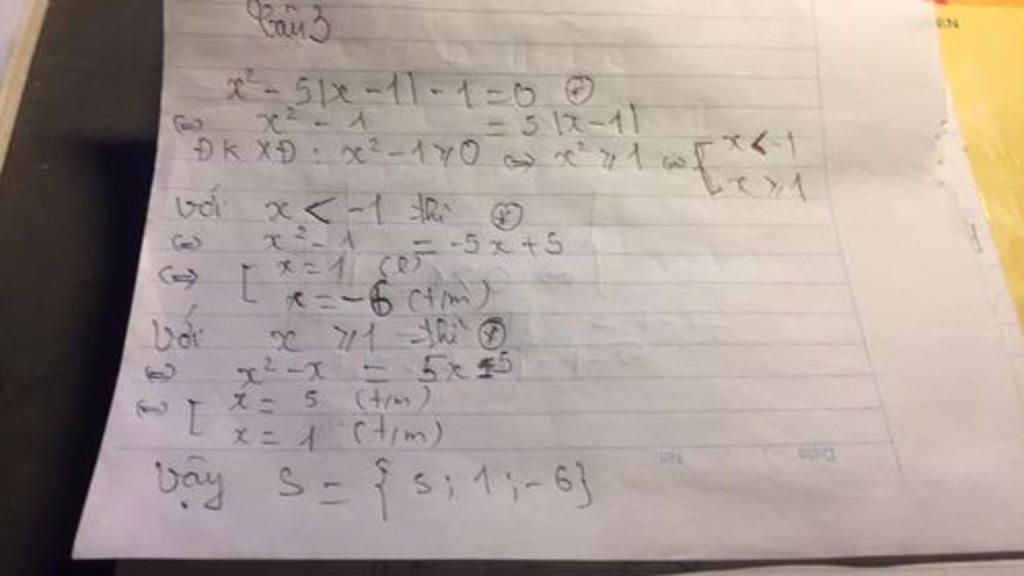 Câu 3
EN
x² - 5|x - 1| - 1 = 0 (*)
⇔ x² - 1 = 5|x - 1|
ĐKXĐ: x² - 1 ≥ 0 ⇔ x² ≥ 1 ⇔ [ x < -1
x ≥ 1
Với x < -1 thì (*)
⇔ x² - 1 = -5x + 5
⇔ [ x = 1 (l)
x = -6 (t/m)
Với x ≥ 1 thì (*)
⇔ x² - x = 5x - 5
⇔ [ x = 5 (t/m)
x = 1 (t/m)
Vậy S = { 5; 1; -6}
No Date